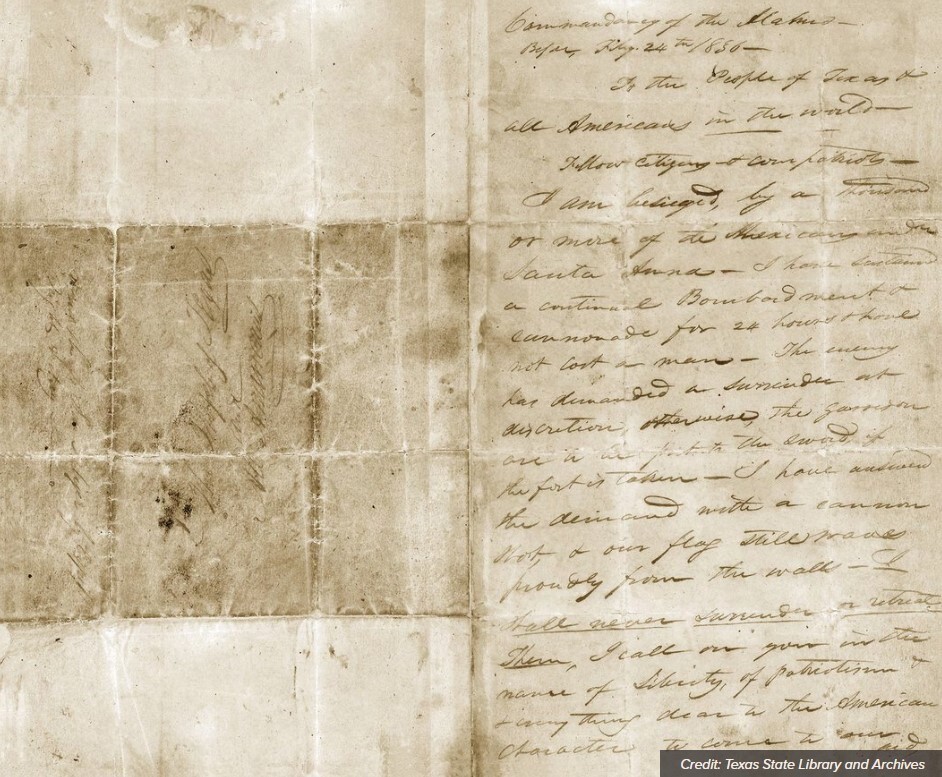 Commandancy of the Alamo—
Bejar, Feby. 24th 1836—
To the People of Texas &
all Americans in the world—
Fellow citizens & compatriots—
I am besieged, by a thousand
or more of the Mexicans under
Santa Anna — I have sustained
a continual Bombardment &
cannonade for 24 hours & have
not lost a man — The enemy
has demanded a surrender at
discretion, otherwise, the garrison
are to be put to the sword, if
the fort is taken — I have answered
the demand with a cannon
shot, & our flag still waves
proudly from the wall — I
shall never surrender or retreat
Then, I call on you in the
name of Liberty, of patriotism &
& every thing dear to the American
character, to come to our aid
Credit: Texas State Library and Archives